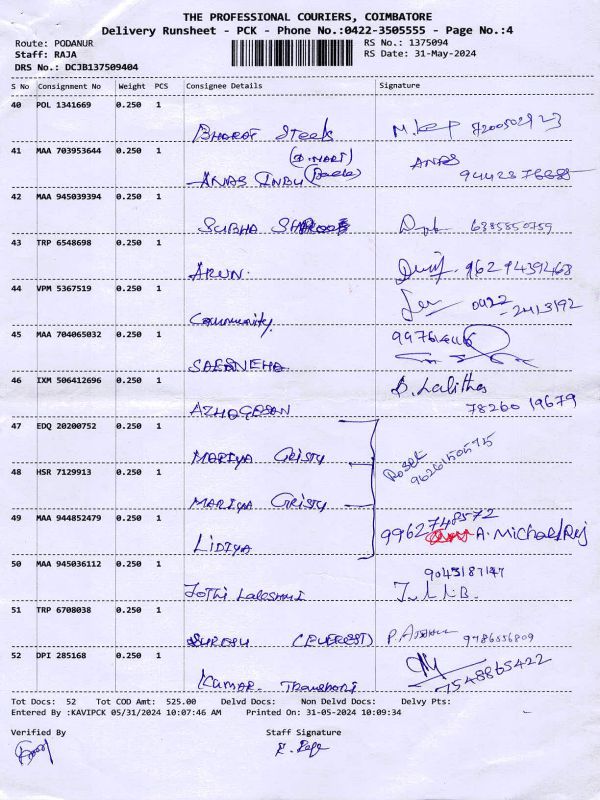 THE PROFESSIONAL COURIERS, COIMBATORE
Delivery Runsheet - PCK - Phone No.:0422-3505555 - Page No.:4
Route: PODANUR
RS No.: 1375094
Staff: RAJA
RS Date: 31-May-2024
DRS No.: DCJB137509404
S No Consignment No Weight PCS Consignee Details Signature
40 POL 1341669 0.250 1
Bharat Steels
41 MAA 703953644 0.250 1
ANAS
ANAS INBU
94423
42 MAA 945039394 0.250 1
SUBHA 6385850759
43 TRP 6548698 0.250 1
ARUN. 9629439468
44 VPM 5367519 0.250 1
Community 0422
- 2413192
45 MAA 704065032 0.250 1
46 IXM 506412696 0.250 1
B. Lalitha
AZHAGESAN 78260 19679
47 EDQ 20200752 0.250 1
MARIYA CRISTY
48 HSR 7129913 0.250 1
MARIYA CRISTY
49 MAA 944852479 0.250 1
9962748572
LIDIYA A. Michael Raj
50 MAA 945036112 0.250 1
JOTHI
51 TRP 6708038 0.250 1
SURESH (EVEREST) 9786556809
52 DPI 285168 0.250 1
Kumar Transport 7548865422
Tot Docs: 52 Tot COD Amt: 525.00 Delvd Docs: Non Delvd Docs: Delvy Pts:
Entered By :KAVIPCK 05/31/2024 10:07:46 AM Printed On: 31-05-2024 10:09:34
Verified By Staff Signature